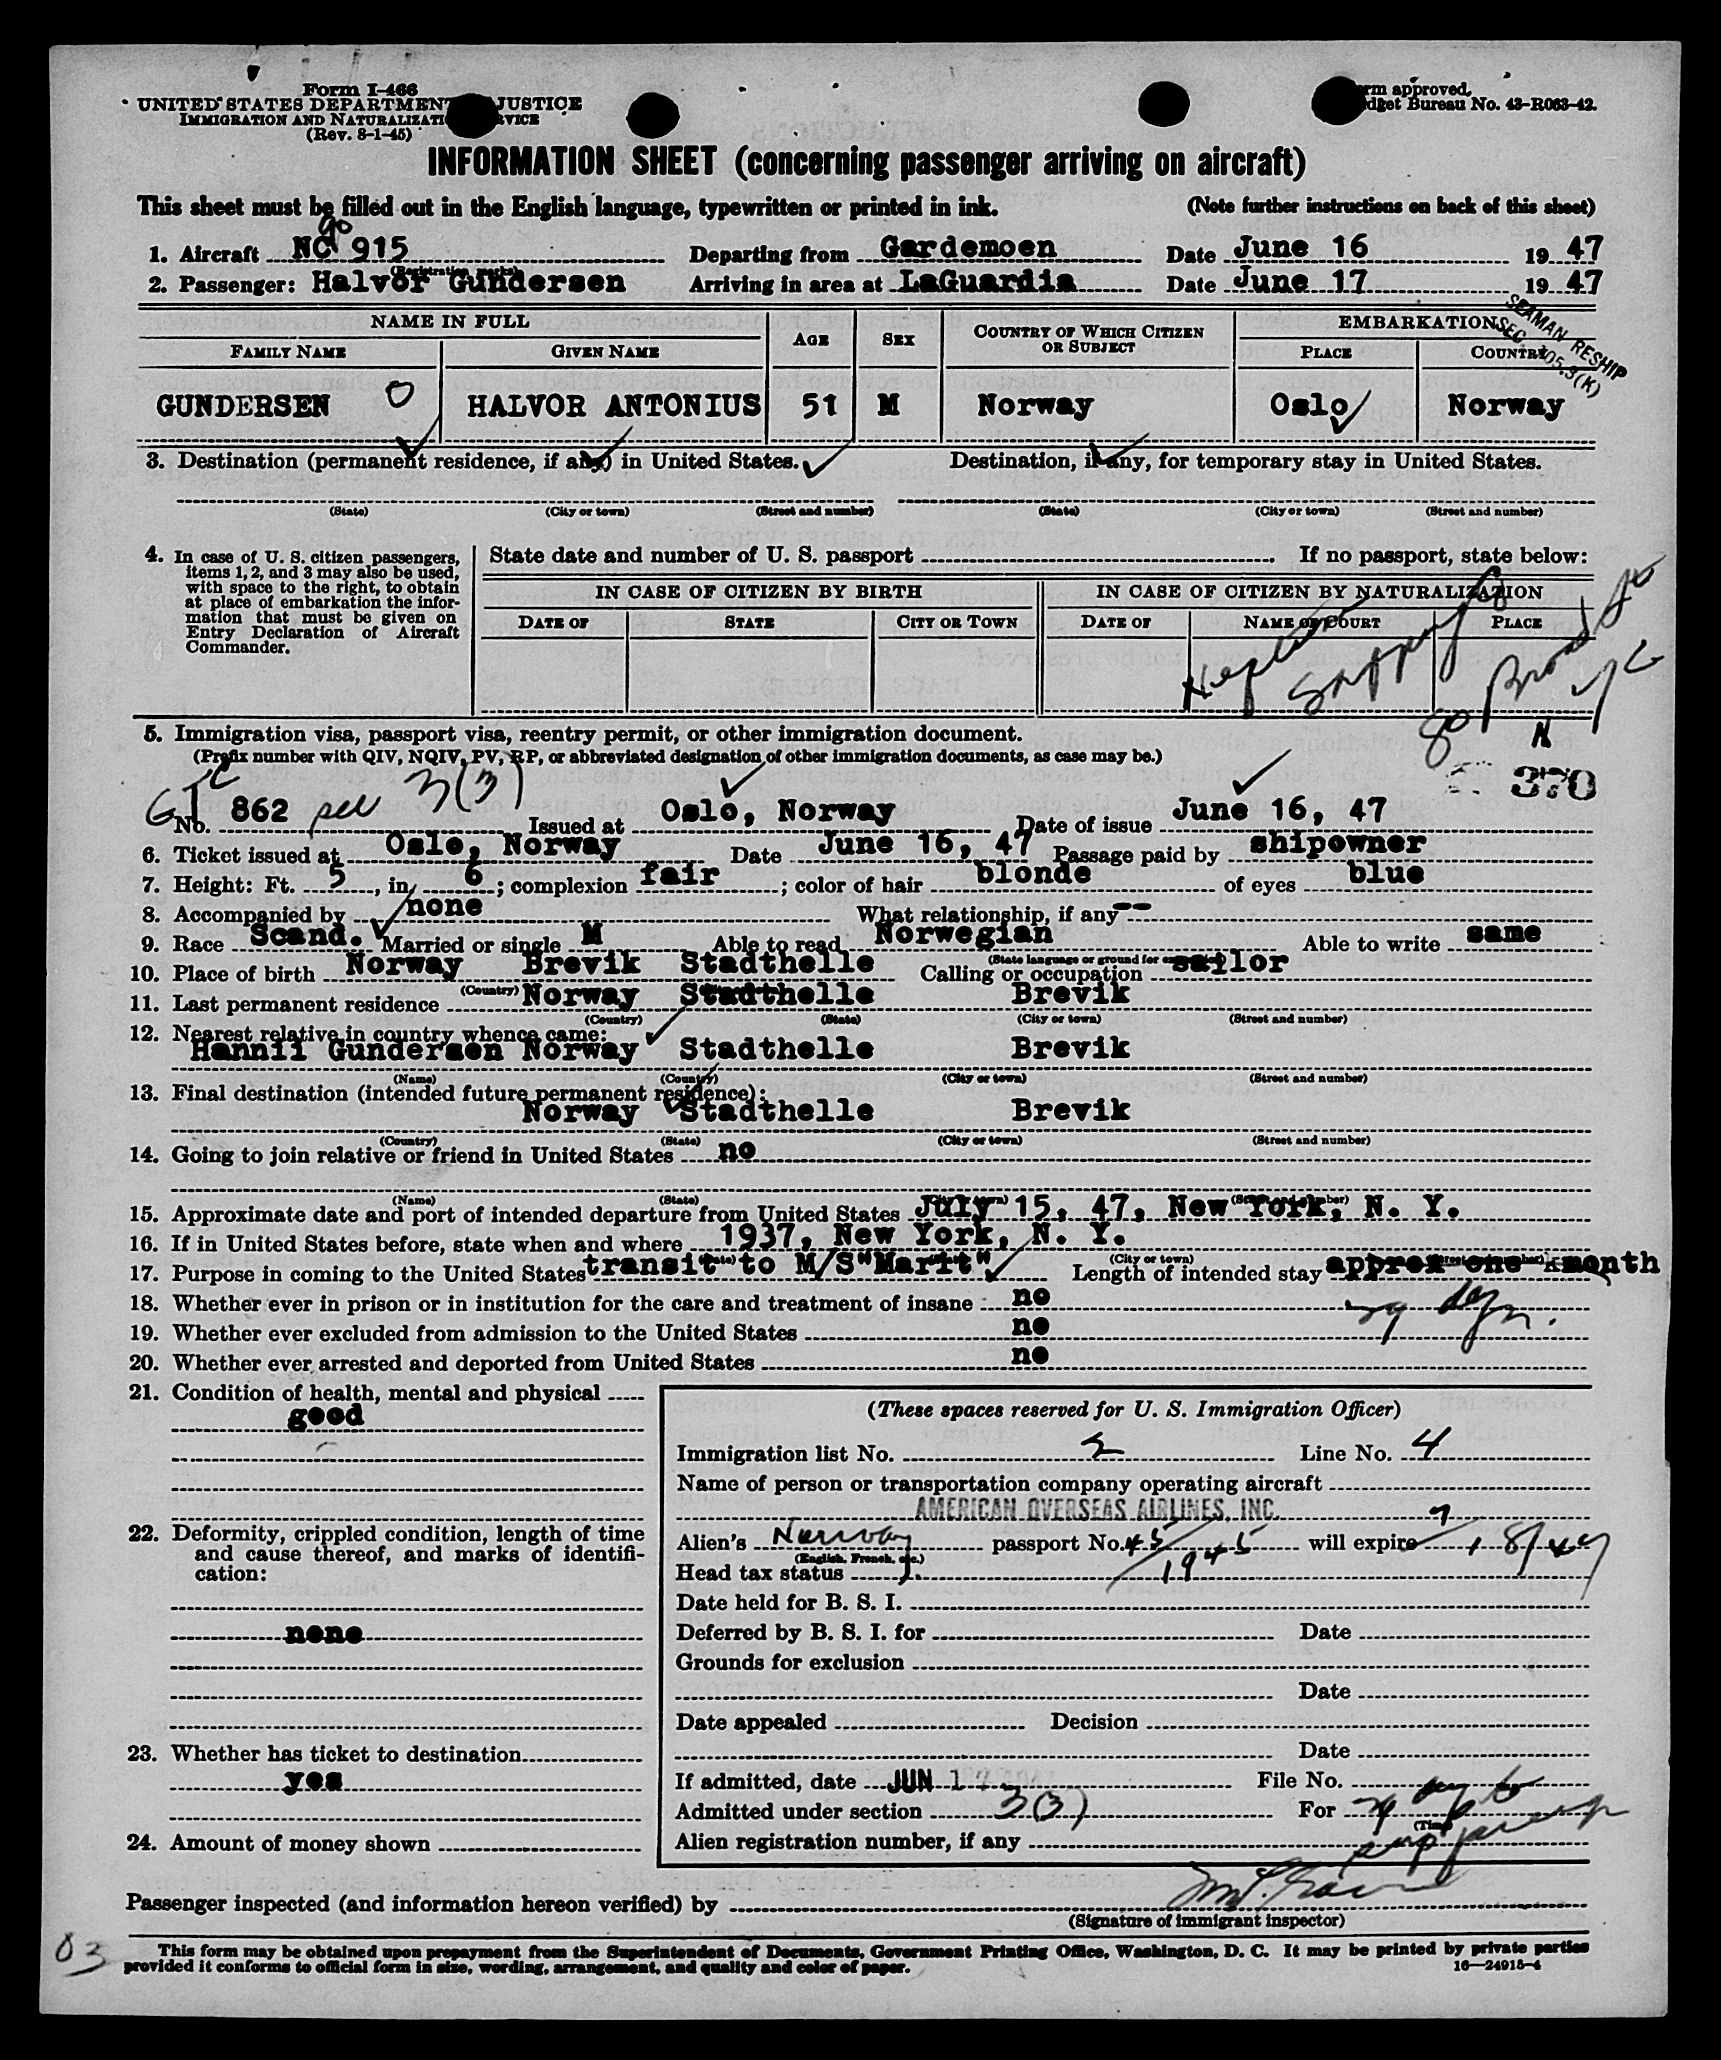 Form I-466
UNITED STATES DEPARTMENT JUSTICE
IMMIGRATION AND NATURALIZATI RVICE
(Rev. 8-1-45)
rm approved.
dget Bureau No. 43-R063-42.
INFORMATION SHEET (concerning passenger arriving on aircraft)
This sheet must be filled out in the English language, typewritten or printed in ink.
(Note further instructions on back of this sheet)
90
1. Aircraft NC 915 Departing from Gardemoen Date June 16 1947
(Registration marks)
2. Passenger: Halvor Gundersen Arriving in area at LaGuardia Date June 17 1947
SEAMAN RESHIP
SEC. 105.3(K)
NAME IN FULL AGE SEX COUNTRY OF WHICH CITIZEN OR SUBJECT EMBARKATION
FAMILY NAME GIVEN NAME PLACE COUNTRY
GUNDERSEN O HALVOR ANTONIUS 51 M Norway Oslo Norway
3. Destination (permanent residence, if any) in United States. Destination, if any, for temporary stay in United States.
(State) (City or town) (Street and number) (State) (City or town) (Street and number)
4. In case of U. S. citizen passengers, items 1, 2, and 3 may also be used, with space to the right, to obtain at place of embarkation the information that must be given on Entry Declaration of Aircraft Commander.
State date and number of U. S. passport . If no passport, state below:
IN CASE OF CITIZEN BY BIRTH IN CASE OF CITIZEN BY NATURALIZATION
DATE OF STATE CITY OR TOWN DATE OF NAME OF COURT PLACE
Shipping
80 Broad St
NYC
5. Immigration visa, passport visa, reentry permit, or other immigration document.
(Prefix number with QIV, NQIV, PV, RP, or abbreviated designation of other immigration documents, as case may be.)
370
No. 862 3(3) Issued at Oslo, Norway Date of issue June 16, 47
6. Ticket issued at Oslo, Norway Date June 16, 47 Passage paid by shipowner
7. Height: Ft. 5, in. 6; complexion fair; color of hair blonde of eyes blue
8. Accompanied by none What relationship, if any --
9. Race Scand. Married or single M Able to read Norwegian Able to write same
10. Place of birth Norway Brevik Stadthelle Calling or occupation sailor
(Country)
11. Last permanent residence Norway Stadthelle Brevik
(Country) (State) (City or town) (Street and number)
12. Nearest relative in country whence came:
Hannii Gundersen Norway Stadthelle Brevik
(Name) (Country) (City or town) (Street and number)
13. Final destination (intended future permanent residence):
Norway Stadthelle Brevik
(Country) (State) (City or town) (Street and number)
14. Going to join relative or friend in United States no
(Name) (State) (City or town) (Street and number)
15. Approximate date and port of intended departure from United States July 15, 47, New York, N. Y.
16. If in United States before, state when and where 1937, New York, N. Y.
(City or town)
17. Purpose in coming to the United States transit to M/S"Marit" Length of intended stay approx one month
18. Whether ever in prison or in institution for the care and treatment of insane no
29 days.
19. Whether ever excluded from admission to the United States no
20. Whether ever arrested and deported from United States no
21. Condition of health, mental and physical
good
22. Deformity, crippled condition, length of time and cause thereof, and marks of identification:
none
23. Whether has ticket to destination
yes
24. Amount of money shown
(These spaces reserved for U. S. Immigration Officer)
Immigration list No. 2 Line No. 4
Name of person or transportation company operating aircraft
AMERICAN OVERSEAS AIRLINES, INC.
Alien's Norway passport No. 45/1945 will expire
(English, French, etc.)
Head tax status
Date held for B. S. I.
Deferred by B. S. I. for Date
Grounds for exclusion
Date
Date appealed Decision
Date
If admitted, date JUN 17 File No.
Admitted under section 3(3) For 29 days
(Time)
Alien registration number, if any
Passenger inspected (and information hereon verified) by
(Signature of immigrant inspector)
03
This form may be obtained upon prepayment from the Superintendent of Documents, Government Printing Office, Washington, D. C. It may be printed by private parties
provided it conforms to official form in size, wording, arrangement, and quality and color of paper.
16—24915-4